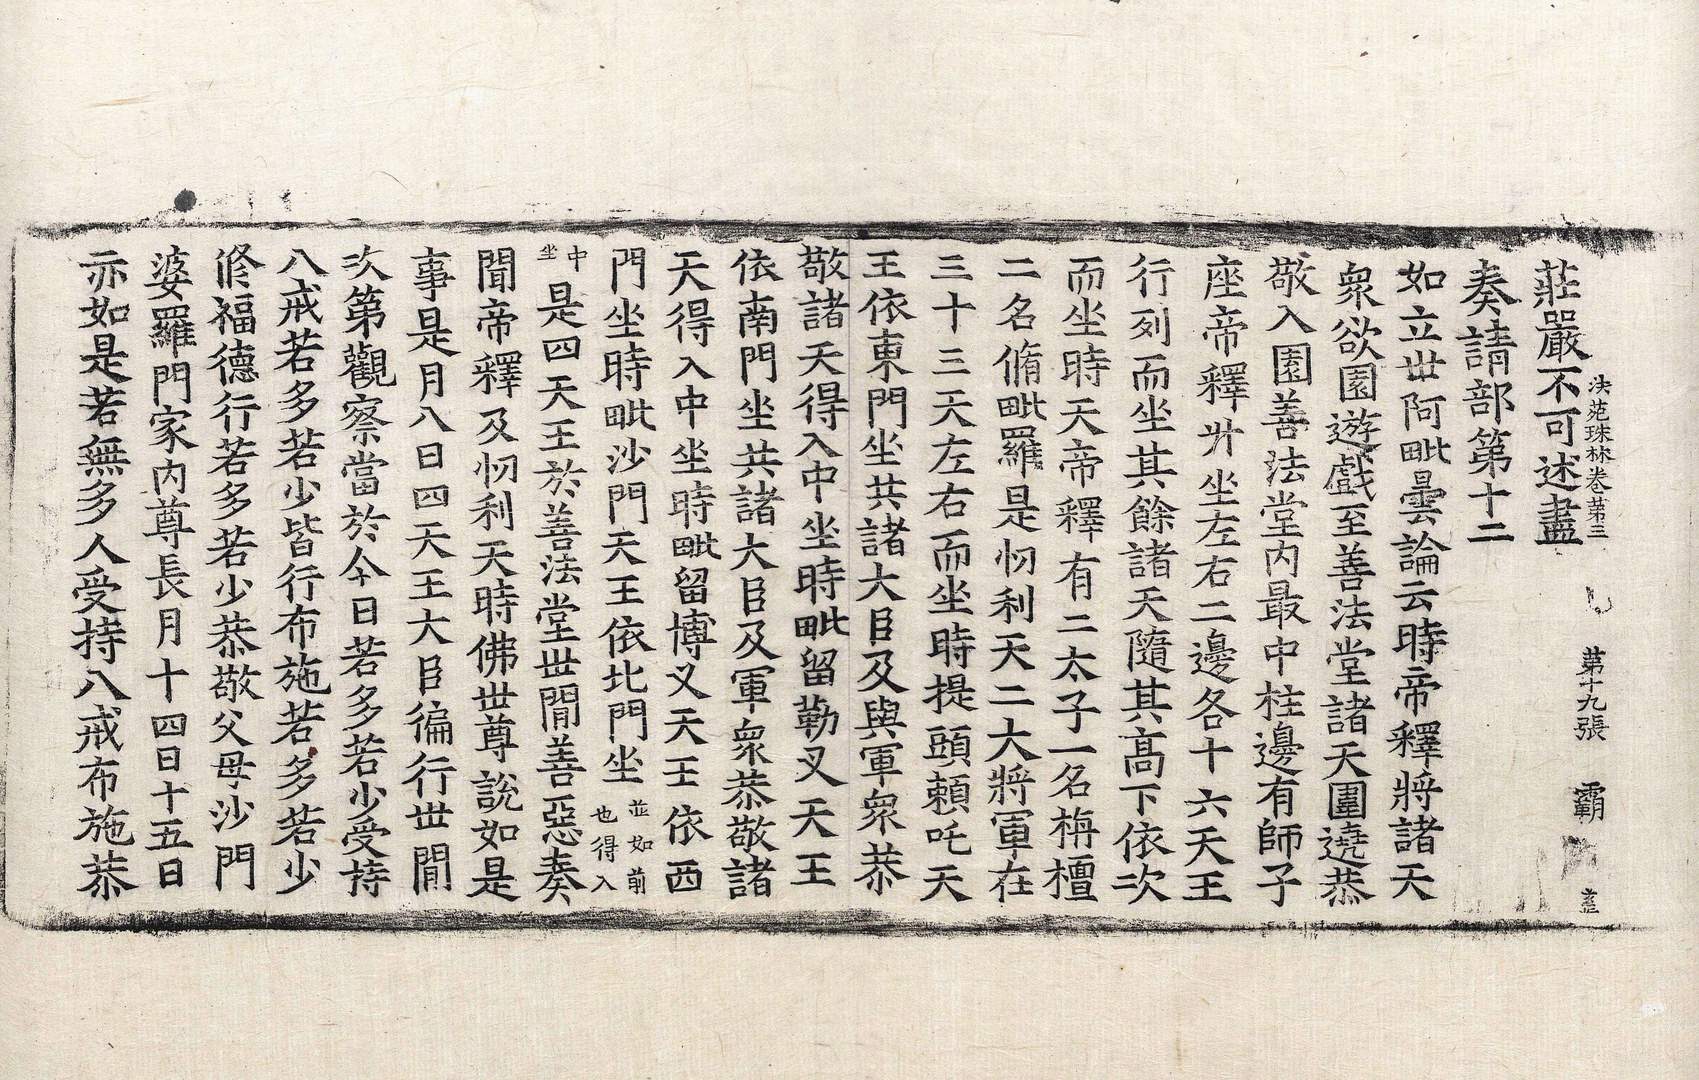 法苑珠林卷第三　第十九張　霸
莊嚴不可述盡
奏請部第十二
如立世阿毗曇論云時帝釋將諸天
衆欲園遊戲至善法堂諸天圍遶恭
敬入園善法堂內最中柱邊有師子
座帝釋升坐左右二邊各十六天王
行列而坐其餘諸天隨其高下依次
而坐時天帝釋有二太子一名栴檀
二名脩毗羅是忉利天二大將軍在
三十三天左右而坐時提頭賴吒天
王依東門坐共諸大臣及與軍衆恭
敬諸天得入中坐時毗留勒叉天王
依南門坐共諸大臣及軍衆恭敬諸
天得入中坐時毗留博叉天王依西
門坐時毗沙門天王依北門坐並如前也得入
中坐是四天王於善法堂世閒善惡奏
聞帝釋及忉利天時佛世尊說如是
事是月八日四天王大臣徧行世閒
次第觀察當於今日若多若少受持
八戒若多若少皆行布施若多若少
修福德行若多若少恭敬父母沙門
婆羅門家內尊長月十四日十五日
亦如是若無多人受持八戒布施恭